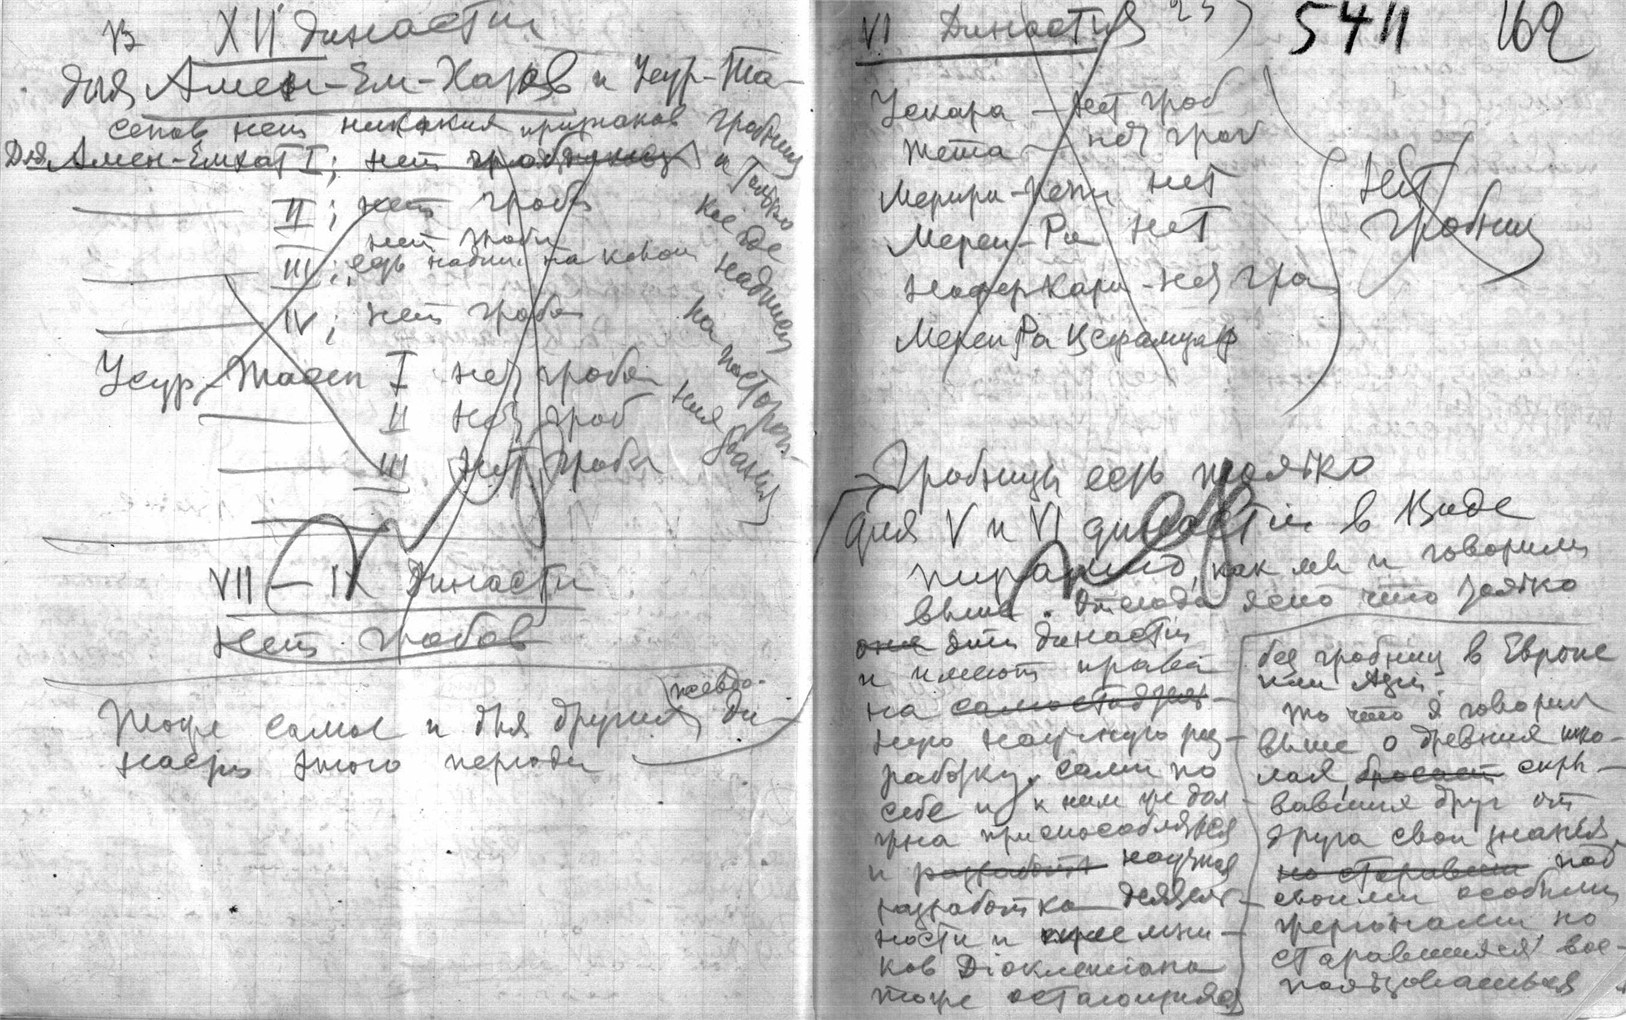 В XII династии
Для Амен-Ем-Хатов и Усур-Та-
сенов нет никаких признаков гробниц
и только
кое где
надписи
на посторон-
них зданиях
Для Амен-Емхат I; нет
II; нет гроба
нет гроба
III; есть надпись на
IV; нет гроба
Усур-Тасен I нет гроба
II нет гроб
III нет гроба
VII — IX Династии
Нет гробов
Тоже самое и для других псевдо-ди-
настий этого периода
VI Династия 23) 5411 162
Усекара — нет гроб
Тета — нет гроб
Мерира-Пепи нет
Мерен-Ра нет
Неферкара - нет гро
Мерен Ра
Нет
Гробниц
Гробницы есть только
для V и VI династии в виде
пирамид, как мы и говорили
выше. Отсюда ясно что только
они эти династии
и имеют права
на самостоятель-
ную научную раз-
работку сами по
себе и к ним же дол-
жна приспособляться
и разработка научная
разработка деятель-
ности и преемни-
ков Діоклетіана
тоже остающихся
без гробниц в Европе
или Азии.
То что я говорил
выше о древних шко-
лах, бросает скры-
вавших друг от
друга свои знания,
но старавши под
своими особыми
жаргонами, но
старавшихся вос-
пользоваться